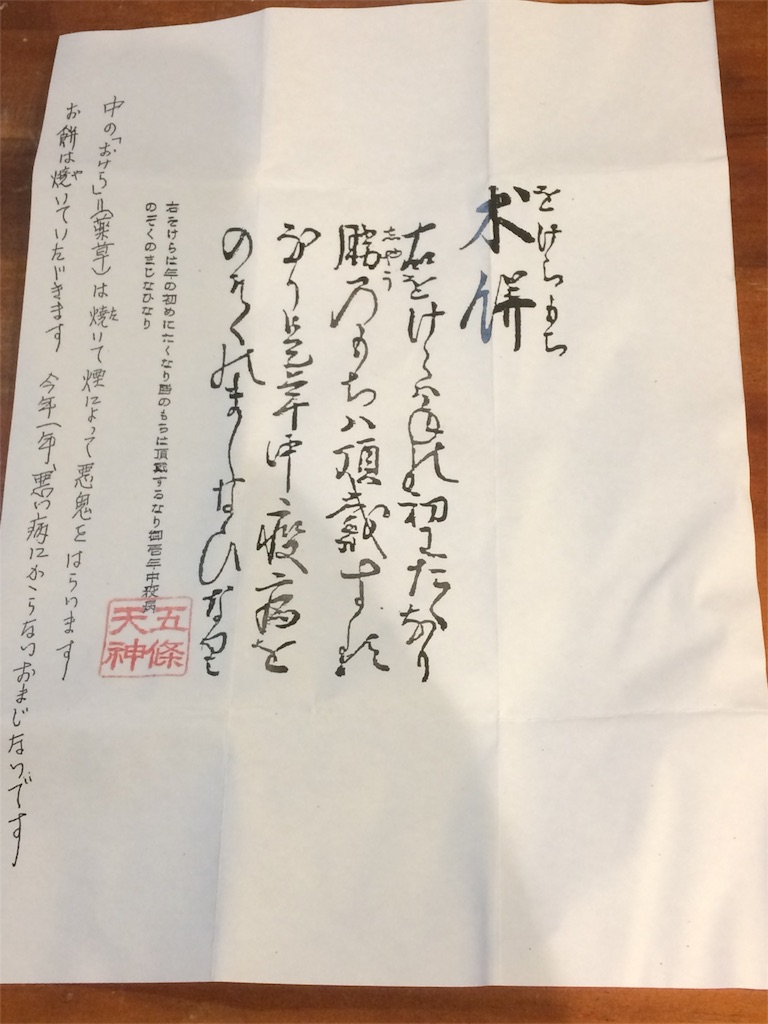 をけらもち
朮餅
右をけらハ年の初にたくなり
しやう
勝乃もちハ頂戴する
なり御壱年中疫病を
のそくのましなひなり
右をけらは年の初めにたくなり勝のもちは頂戴するなり御壱年中疫病
のぞくのまじなひなり
五條
天神
中の「おけら」(薬草)は焼いて煙によって悪鬼をはらいます
た
お餅は焼いていただきます 今年一年、悪い病にかからないおまじないです
や